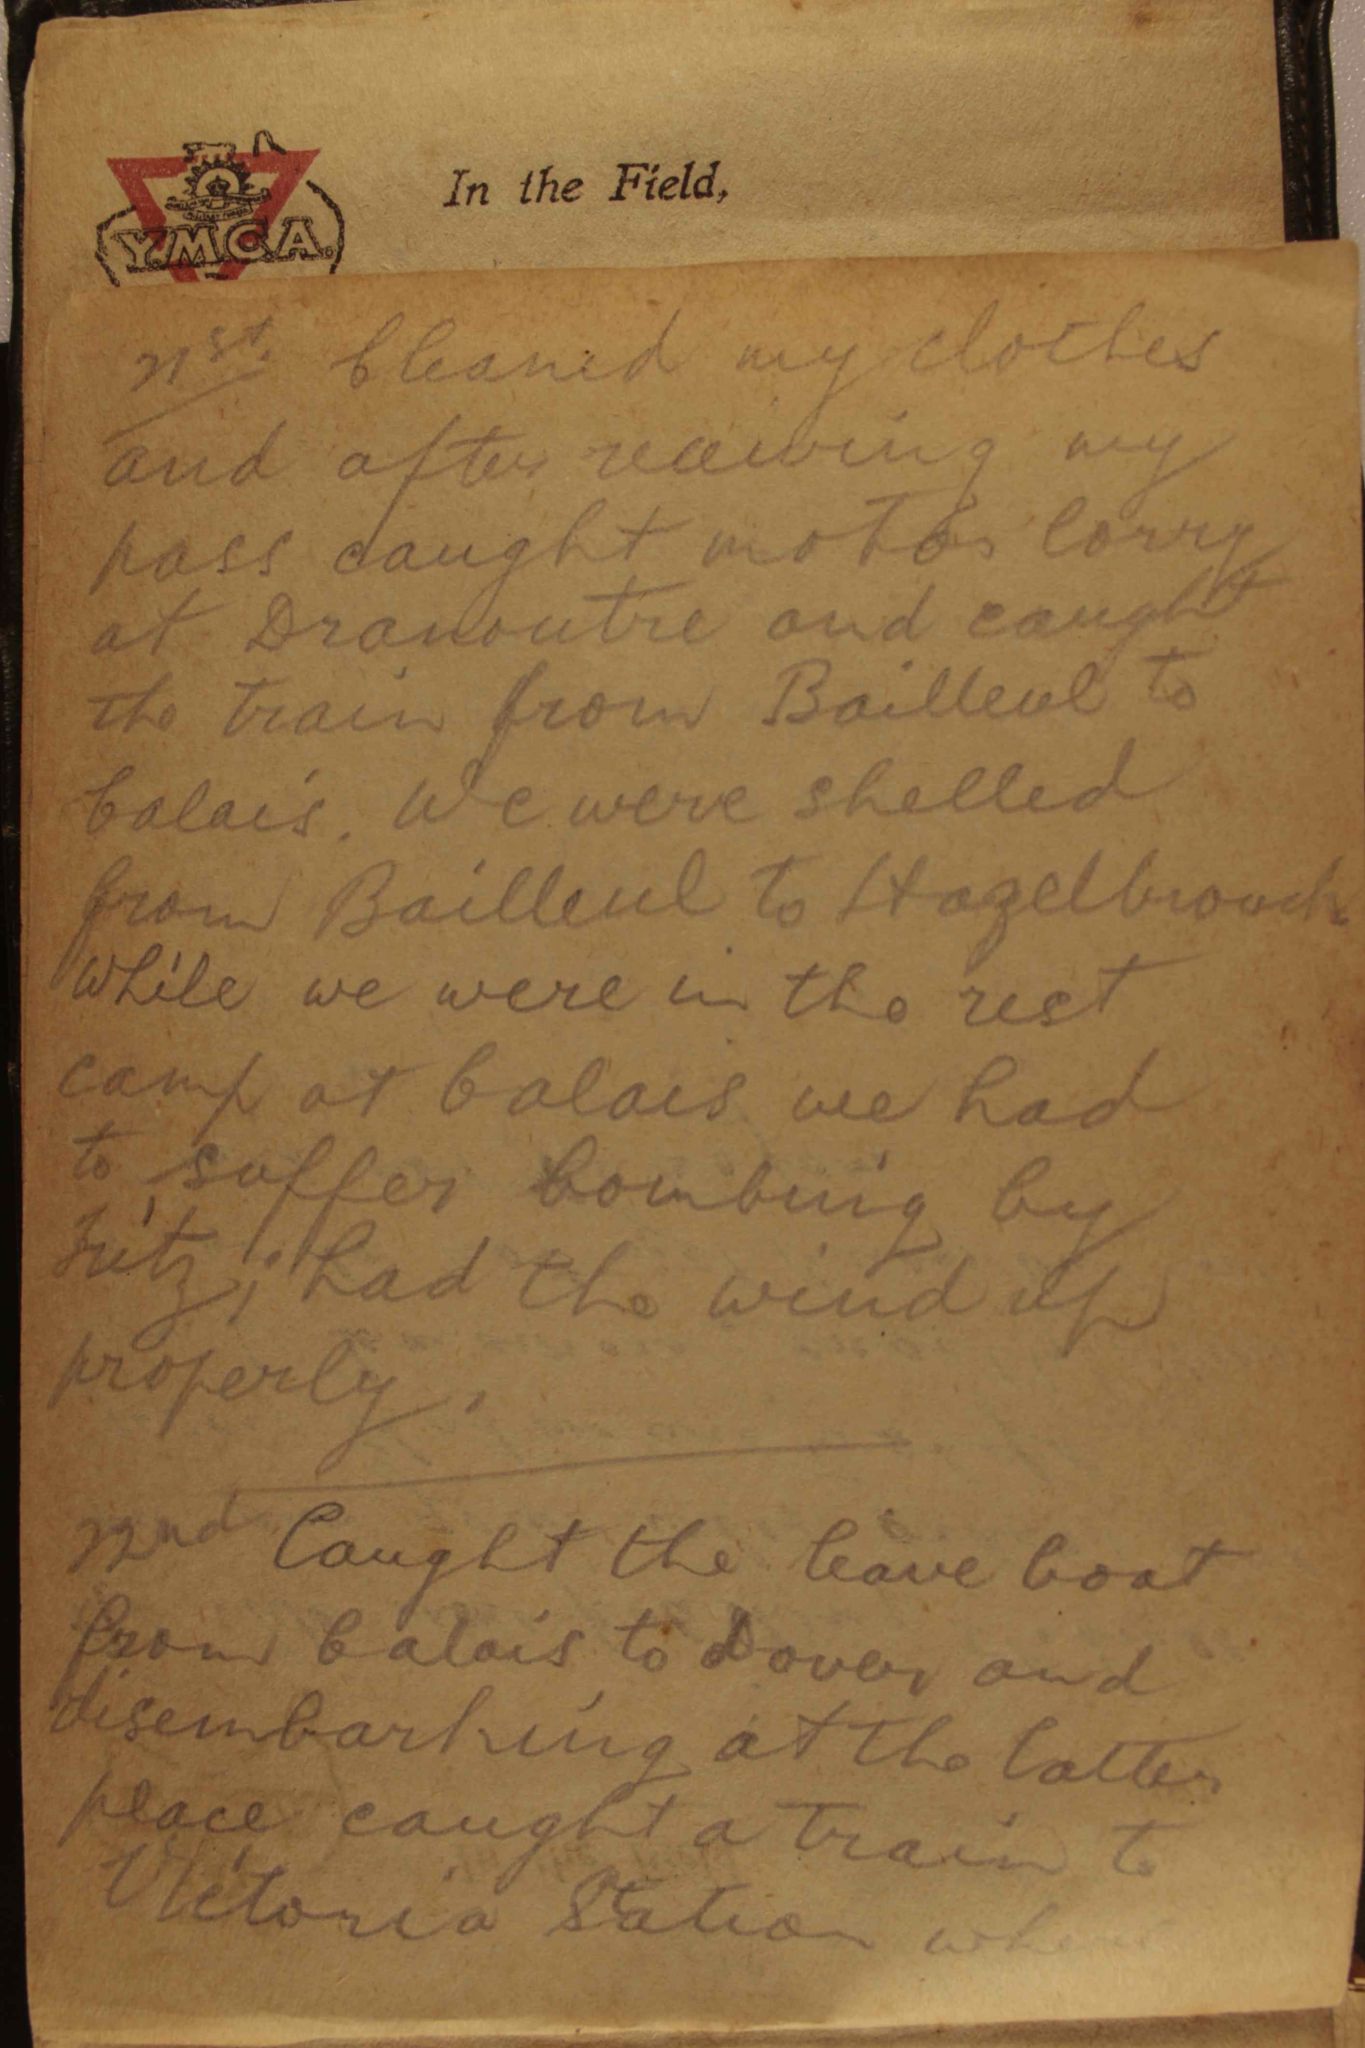 Y.M.C.A.
In the Field,
21st. Cleaned my clothes
and after receiving my
pass caught motor lorry
at Dranoutre and caught
the train from Bailleul to
Calais. We were shelled
from Bailleul to Hazelbrouck
while we were in the rest
camp at Calais we had
to suffer bombing by
Fritz, had the wind up
properly.
22nd Caught the leave boat
from Calais to Dover and
disembarking at the latter
place caught a train to
Victoria Station where